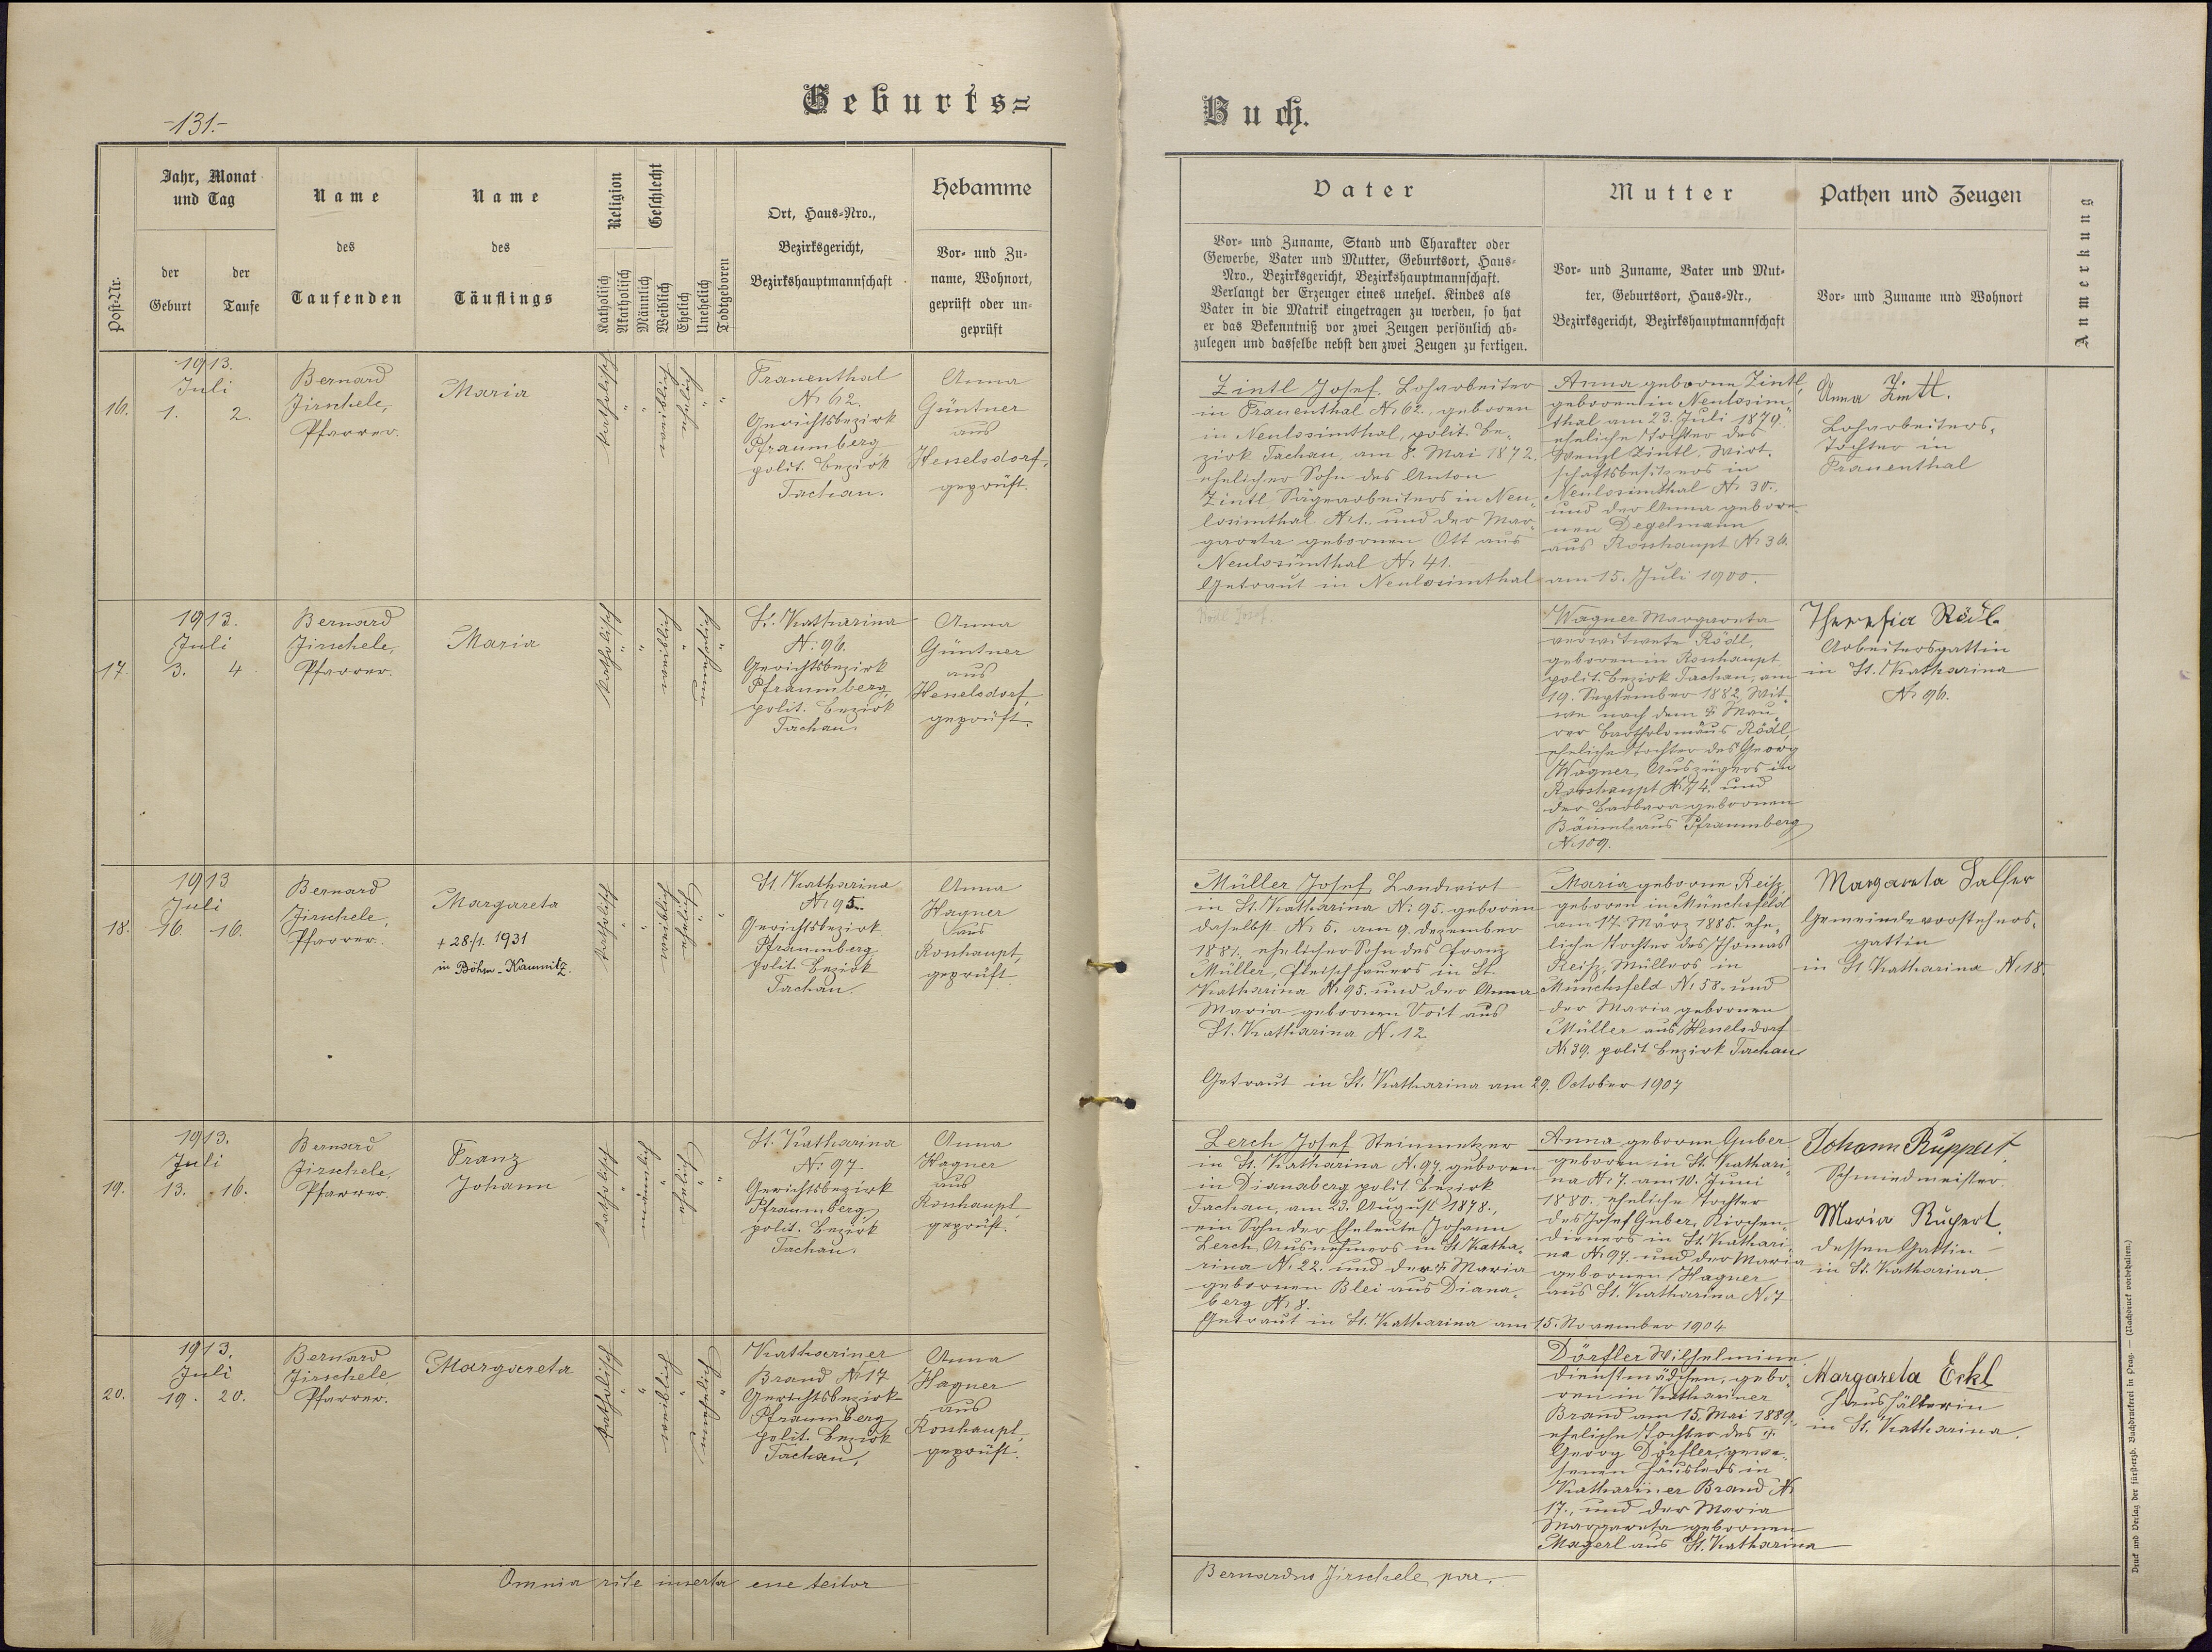 -131.-
Geburts=
Buch.
Post-Nr.
Jahr, Monat
und Tag
der
Geburt
der
Taufe
Name
des
Taufenden
Name
des
Täuflings
Religion
Katholisch
Akatholisch
Geschlecht
Männlich
Weiblich
Ehelich
Unehelich
Todtgeboren
Ort, Haus-Nro.,
Bezirksgericht,
Bezirkshauptmannschaft
Hebamme
Vor- und Zu-
name, Wohnort,
geprüft oder un-
geprüft
Vater
Vor- und Zuname, Stand und Charakter oder
Gewerbe, Vater und Mutter, Geburtsort, Haus-
Nro., Bezirksgericht, Bezirkshauptmannschaft.
Verlangt der Erzeuger eines unehel. Kindes als
Vater in die Matrik eingetragen zu werden, so hat
er das Bekenntniß vor zwei Zeugen persönlich ab-
zulegen und dasselbe nebst den zwei Zeugen zu fertigen.
Mutter
Vor- und Zuname, Vater und Mut-
ter, Geburtsort, Haus-Nr.,
Bezirksgericht, Bezirkshauptmannschaft
Pathen und Zeugen
Vor- und Zuname und Wohnort
Anmerkung
16.
1913.
Juli
1. 2.
Bernard
Jirschele,
Pfarrer.
Maria
katholisch
"
"
weiblich
ehelich
"
"
Frauenthal
N: 62.
Gerichtsbezirk
Pfraumberg
polit. Bezirk
Tachau.
Anna
Güntner
aus
Hesselsdorf,
geprüft.
Zintl Josef, Loharbeiter
in Frauenthal N: 62., geboren
in Neulosimthal, polit. Be-
zirk Tachau, am 8. Mai 1872.
ehelicher Sohn des Anton
Zintl, Sägearbeiters in Neu-
losimthal N: 1. und der Mar-
gareta gebornen Ott aus
Neulosimthal N: 41.
Getraut in Neulosimthal am 15. Juli 1900.
Anna geborne Zintl,
geboren in Neulosim-
thal am 23. Juli 1879.
eheliche Tochter des
Wenzl Zintl, Wirt-
schaftsbesitzers in
Neulosimthal N: 30.
und der Anna gebore-
nen Degelmann
aus Rosshaupt N: 36.
Anna Zintl.
Loharbeiters-
tochter in
Frauenthal
17.
1913.
Juli
3. 4
Bernard
Jirschele,
Pfarrer.
Maria
katholisch
"
"
weiblich
"
unehelich
"
St. Katharina
N: 96.
Gerichtsbezirk
Pfraumberg,
polit. Bezirk
Tachau.
Anna
Güntner
aus
Hesselsdorf,
geprüft.
Rödl Josef.
Wagner Margareta
verwitwete Rödl,
geboren in Rosshaupt,
polit. Bezirk Tachau, am
19. September 1882, Wit-
we nach dem † Mau-
rer Bartholomäus Rödl,
eheliche Tochter des Georg
Wagner, Auszüglers in
Rosshaupt N: 74. und
der Barbara gebornen
Bäuml aus Pfraumberg
N: 109.
Theresia Rödl
Arbeitersgattin
in St. Katharina
N: 96.
18.
1913
Juli
16. 16.
Bernard
Jirschele,
Pfarrer.
Margareta
+ 28./1. 1931
in Böhm.-Kamnitz.
katholisch
"
"
weiblich
ehelich
"
"
St. Katharina
N: 95.
Gerichtsbezirk
Pfraumberg,
polit. Bezirk
Tachau.
Anna
Wagner
aus
Rosshaupt,
geprüft.
Müller Josef, Landwirt
in St. Katharina N: 95. geboren
daselbst N: 5. am 9. Dezember
1881., ehelicher Sohn des Franz
Müller, Fleischhauers in St.
Katharina N: 95. und der Anna
Maria gebornen Voit aus
St. Katharina N. 12
Getraut in St. Katharina am 29. October 1907
Maria geborne Reiß,
geboren in Münchsfeld
am 17. März 1885. ehe-
liche Tochter des Thomas
Reiß, Müllers in
Münchsfeld N: 58. und
der Maria gebornen
Müller aus Hesselsdorf
N: 39. polit Bezirk Tachau
Margareta Salfer
Gemeindevorstehers-
gattin
in St. Katharina N: 18.
19.
1913.
Juli
13. 16.
Bernard
Jirschele,
Pfarrer.
Franz
Johann
katholisch
"
männlich
"
ehelich
"
"
St. Katharina
N: 97
Gerichtsbezirk
Pfraumberg
polit. Bezirk
Tachau.
Anna
Wagner
aus
Rosshaupt
geprüft.
Lerch Josef Steinmetzer
in St. Katharina N. 97. geboren
in Dianaberg polit. Bezirk
Tachau, am 23. August 1878.,
ein Sohn der Eheleute Johann
Lerch, Ausnehmers in St Katha-
rina N: 22. und der † Maria
gebornen Blei aus Diana-
berg N: 8.
Getraut in St. Katharina am 15. November 1904
Anna geborne Guber
geboren in St. Kathari-
na N: 7. am 10. Juni
1880. eheliche Tochter
des Josef Guber, Kirchen-
dieners in St. Kathari-
na N: 97. und der Maria
gebornen Wagner
aus St. Katharina N: 7
Johann Ruppert
Schmiedmeister.
Maria Rupert
dessen Gattin
in St. Katharina.
20.
1913.
Juli
19. 20.
Bernard
Jirschele,
Pfarrer.
Margareta
katholisch
"
"
weiblich
"
unehelich
"
Kathariner
Brand N: 17
Gerichtsbezirk
Pfraumberg
polit. Bezirk
Tachau.
Anna
Wagner
aus
Rosshaupt,
geprüft.
Dörfler Wilhelmine
Dienstmädchen, gebo-
ren in Kathariner
Brand am 15. Mai 1889.
eheliche Tochter des †
Georg Dörfler, gewe-
senen Häuslers in
Kathariner Brand N:
17., und der Maria
Margareta gebornen
Magerl aus St. Katharina
Margareta Eckl
Haushälterin
in St. Katharina.
Omnia rite inserta esse testor
Bernardus Jirschele, par.
Druck und Verlag der fürsterzb. Buchdruckerei in Prag. — (Nachdruck vorbehalten.)